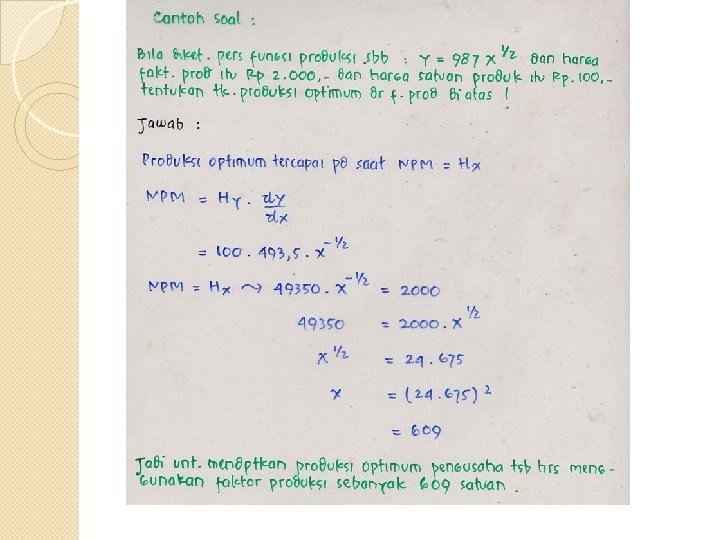 Contoh soal :
Bila diket. pers fungsi produksi sbb : Y = 987 X^1/2 dan harga
fakt. prod itu Rp 2.000,- dan harga satuan produk itu Rp.100,-
tentukan tk. produksi optimum dr f. prod di atas !
Jawab :
Produksi optimum tercapai pd saat NPM = Hx
NPM = Hy . dy/dx
= 100 . 493,5 . x^-1/2
NPM = Hx ⤳ 49350 . x^-1/2 = 2000
49350 = 2000 . x^1/2
x^1/2 = 24.675
x = (24.675)^2
= 609
Jadi unt. mendptkan produksi optimum pengusaha tsb hrs meng-
gunakan faktor produksi sebanyak 609 satuan .